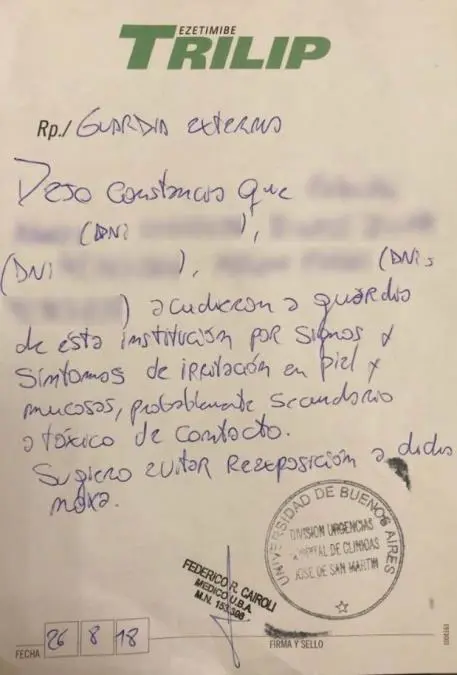 EZETIMIBE
TRILIP
Rp./ GUARDIA EXTERNA
Dejo constancia que
(DNI ),
(DNI ), (DNI:
) acudieron a guardia
de esta institución por signos y
síntomas de irritación en piel y
mucosas, probablemente secundario
a tóxico de contacto.
Sugiero evitar reexposición a dicha
noxa.
UNIVERSIDAD DE BUENOS AIRES
DIVISION URGENCIAS
HOSPITAL DE CLINICAS
JOSE DE SAN MARTIN
FEDERICO R. CAIROLI
MEDICO U.B.A.
M.N. 153.398
FECHA 26 8 18
FIRMA Y SELLO